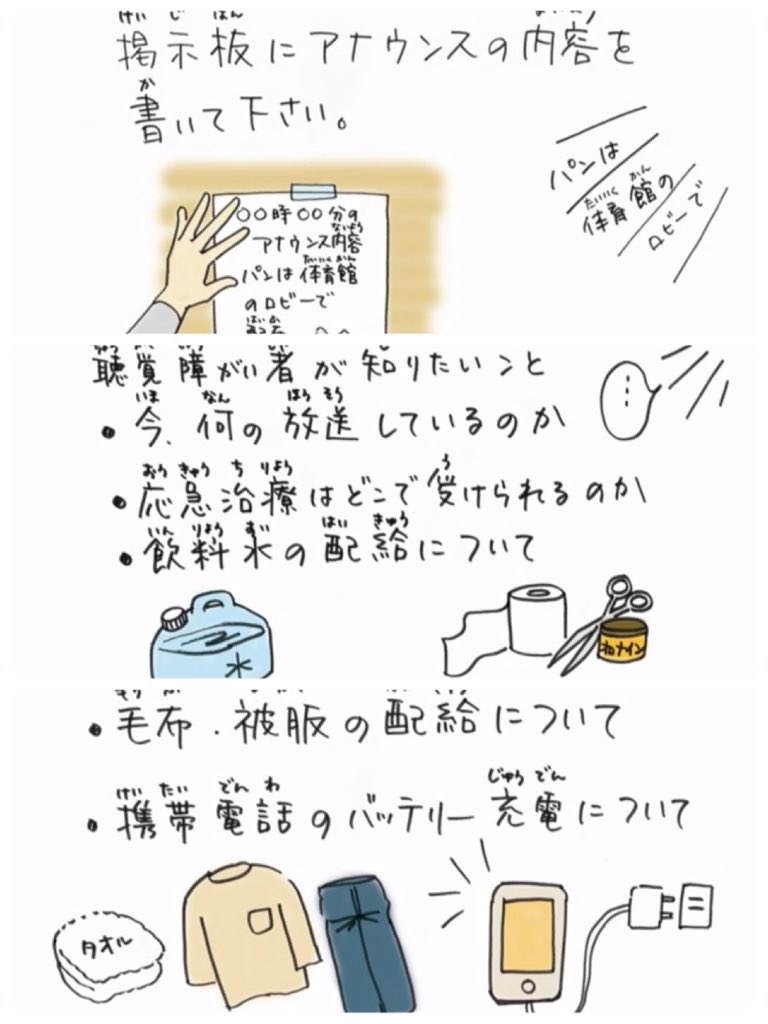 掲示板にアナウンスの内容を
書いて下さい。
パンは
体育館の
ロビーで
○○時○○分の
アナウンス内容
パンは体育館
のロビーで
聴覚障がい者が知りたいこと
・今、何の放送しているのか
・応急治療はどこで受けられるのか
・飲料水の配給について
水
オロナイン
・毛布・被服の配給について
・携帯電話のバッテリー充電について
タオル